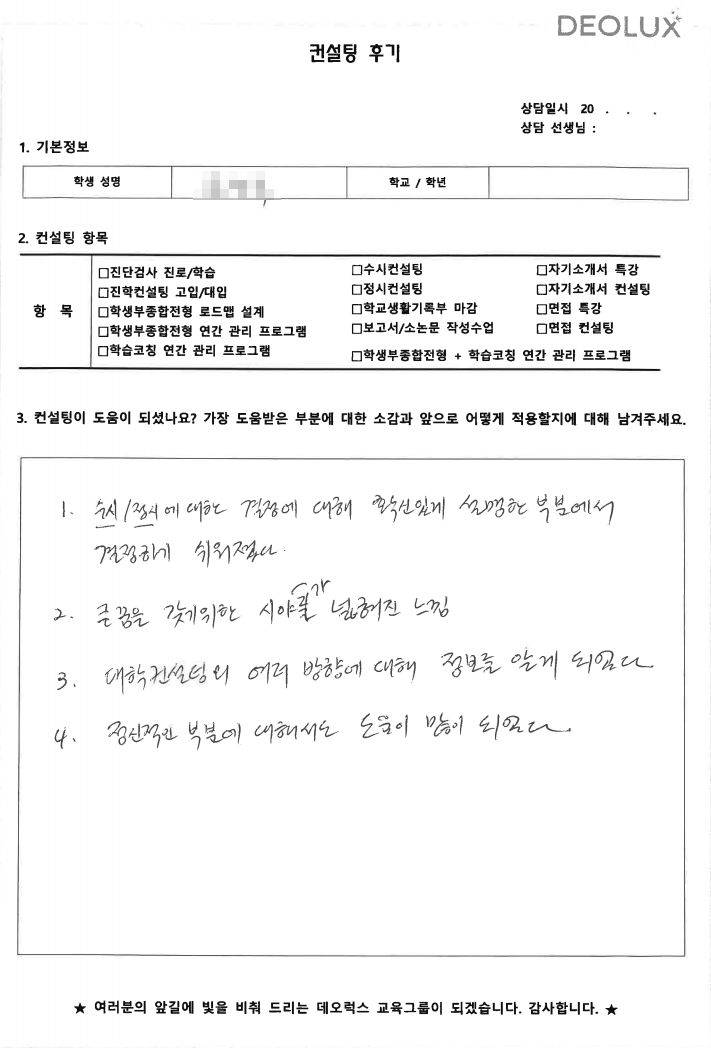 DEOLUX
컨설팅 후기
상담일시 20 . . .
상담 선생님 :
1. 기본정보
학생 성명 학교 / 학년
2. 컨설팅 항목
항 목
□진단검사 진로/학습 □수시컨설팅 □자기소개서 특강
□진학컨설팅 고입/대입 □정시컨설팅 □자기소개서 컨설팅
□학생부종합전형 로드맵 설계 □학교생활기록부 마감 □면접 특강
□학생부종합전형 연간 관리 프로그램 □보고서/소논문 작성수업 □면접 컨설팅
□학습코칭 연간 관리 프로그램 □학생부종합전형 + 학습코칭 연간 관리 프로그램
3. 컨설팅이 도움이 되셨나요? 가장 도움받은 부분에 대한 소감과 앞으로 어떻게 적용할지에 대해 남겨주세요.
1. 수시/정시에 대한 결정에 대해 확신있게 설명한 부분에서
결정하기 쉬워졌다.
2. 큰 꿈을 갖기위한 시야가 넓혀진 느낌
3. 대학컨설팅의 여러 방향에 대해 정보를 알게 되었다
4. 정신적인 부분에 대해서도 도움이 많이 되었다.
★ 여러분의 앞길에 빛을 비춰 드리는 데오럭스 교육그룹이 되겠습니다. 감사합니다. ★